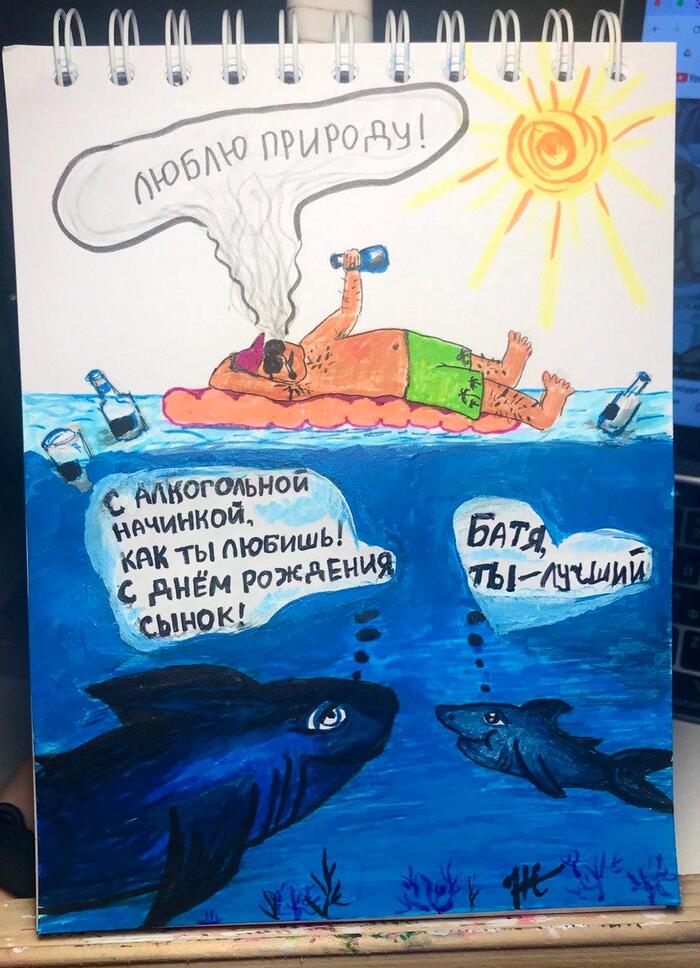 ЛЮБЛЮ ПРИРОДУ!
С АЛКОГОЛЬНОЙ
НАЧИНКОЙ,
КАК ТЫ ЛЮБИШЬ!
С ДНЁМ РОЖДЕНИЯ
СЫНОК!
БАТЯ,
ТЫ-ЛУЧШИЙ